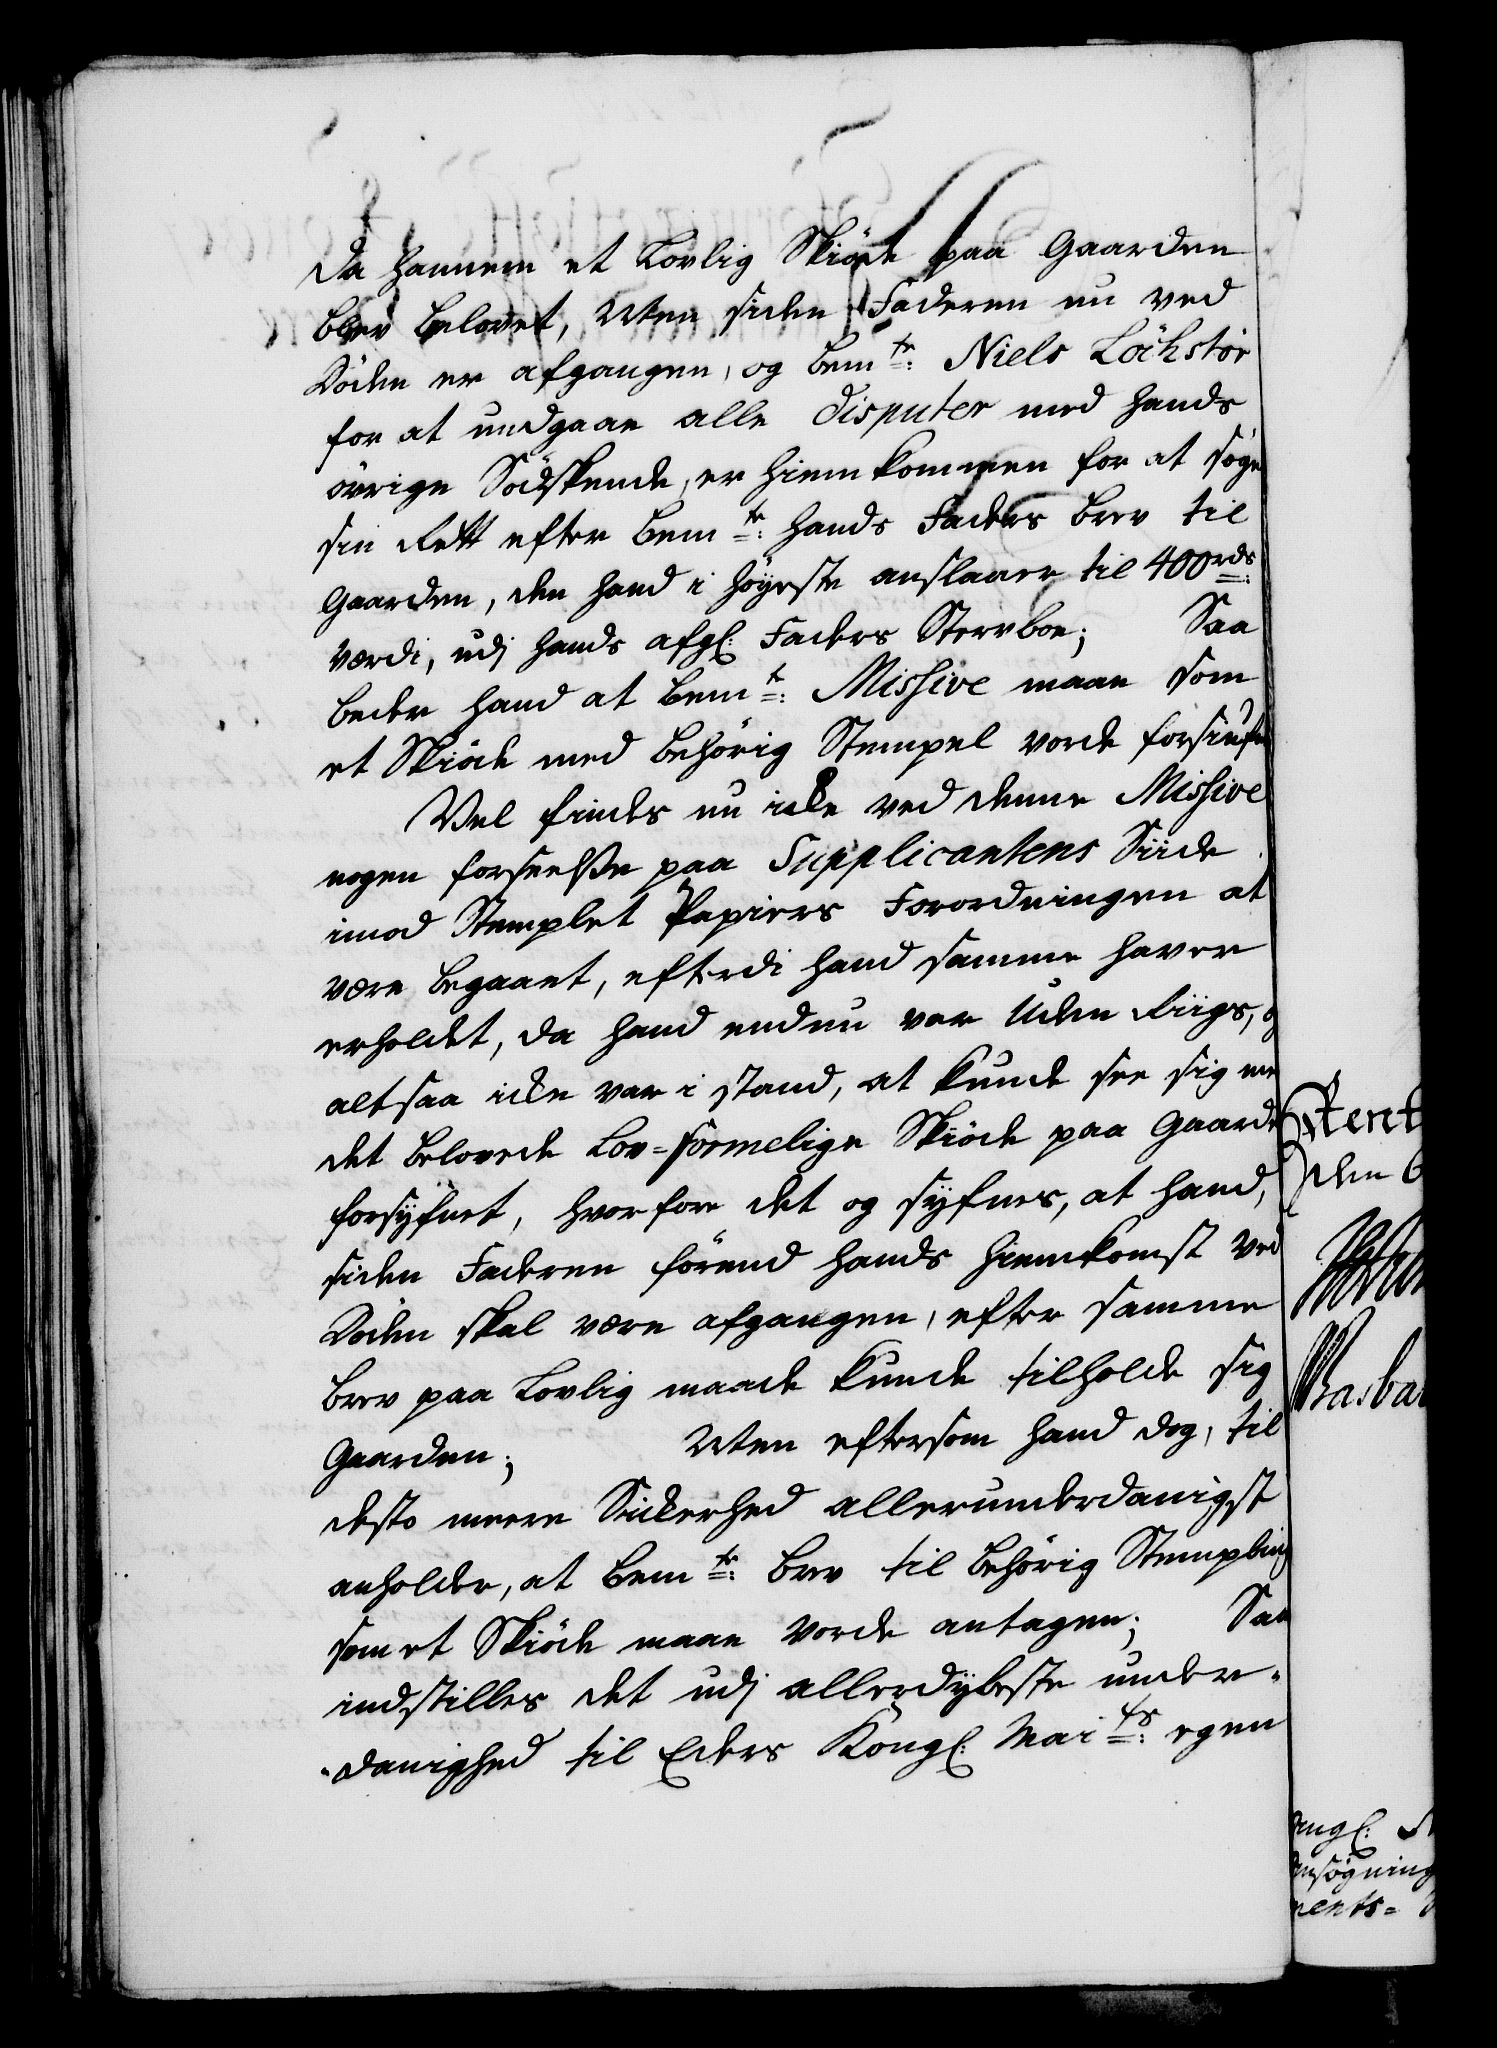 da hannem et Lovlig Skiöde paa Gaarden
blev belovet, Men siden Faderen nu ved
Döden er afgangen, og bem:te Niels Löchstör
for at undgaae alle disputer med hands
övrige Södskende, er hiemkommen for at söge
sin Rett efter bem:te hands Faders brev til
Gaarden, den hand i höyeste anslaaer til 400 rds:
værdi, udj hands afgl: Faders Stervboe; Saa
beder hand at bem:te Missive maae som
et Skiöde med behörig Stempel vorde forsiufnet
Vel findes nu icke ved denne Missive
nogen forseelse paa Supplicantens Siide
imod Stemplet Papiirs Forordningen at
være begaaet, efterdi hand samme haver
erholdet, da hand endnu var Uden Riigs, og
altsaa icke var i stand, at kunde see sig med
det belovede Lov-formelige Skiöde paa Gaarde
forsÿfnet, hvorfore det og sÿfnes, at hand,
siden Faderen förend hands hiemkomst ved
Döden skal være afgangen, efter samme
brev paa Lovlig maade kunde tilholde sig
Gaarden; Men eftersom hand dog, til
desto meere Sickerhed allerunderdanigst
anholder, at bem:te brev til behörig Stempling
som et Skiöde maae vorde antagen; Saa
indstilles det udj allerdÿbeste under-
-danighed til Eders Kongl: Mai:ts egen
Rent
den 6
Basba
ongl:
ansøgning
ments-